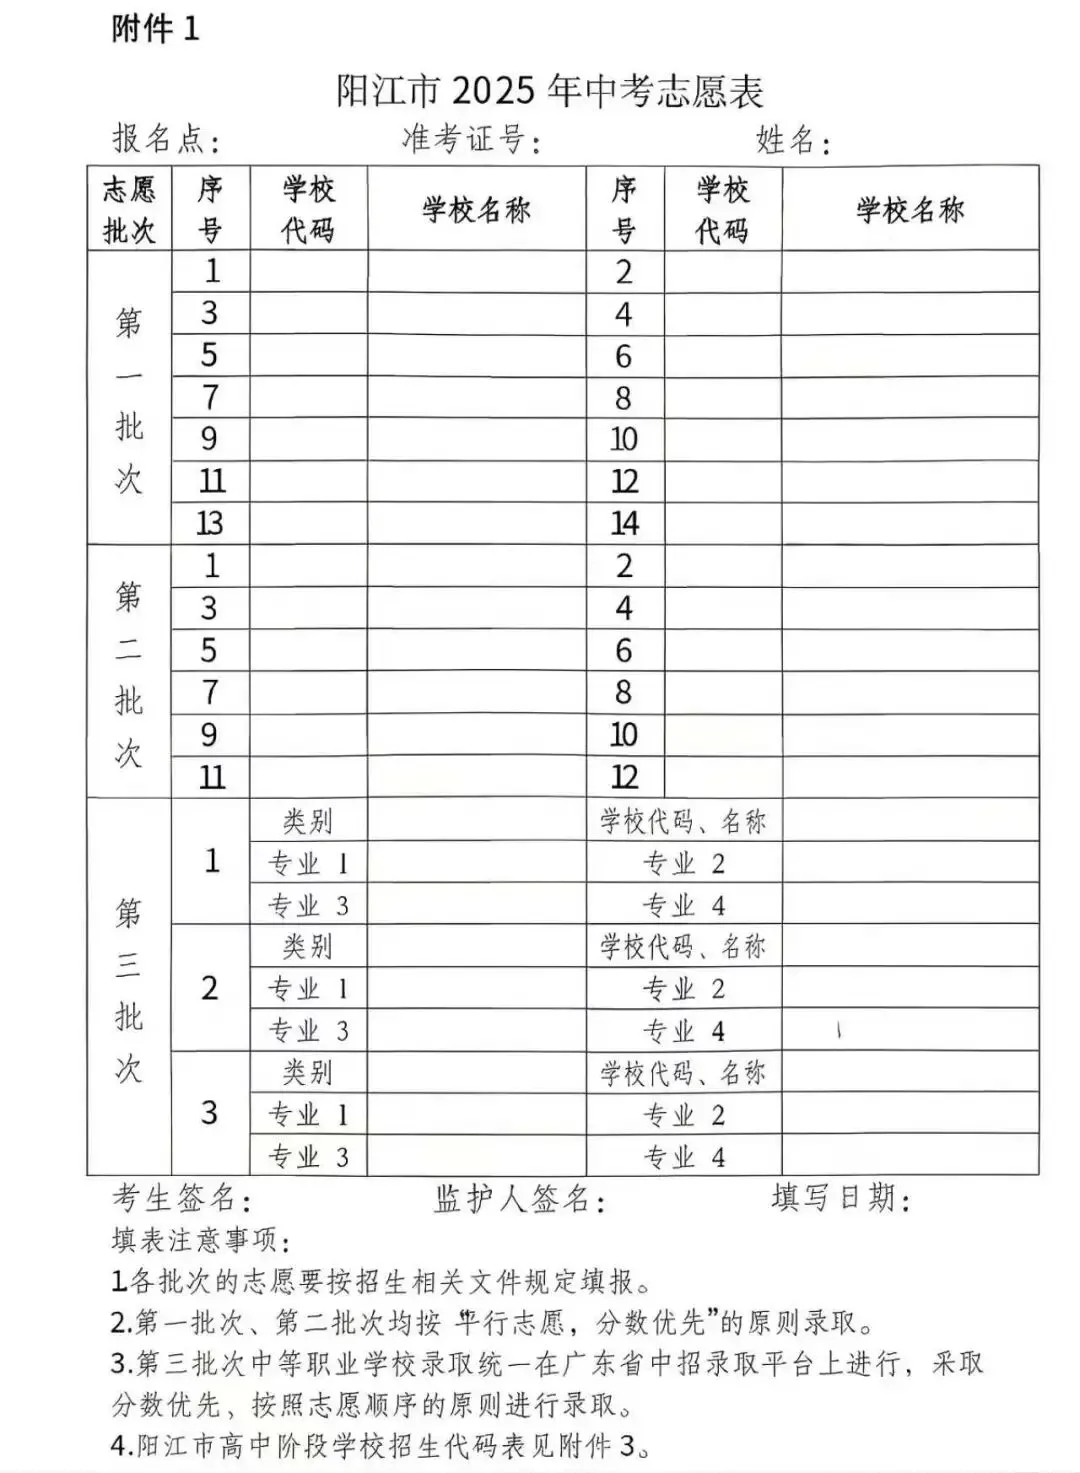 附件 1
阳江市 2025 年中考志愿表
报名点： 准考证号： 姓名：
志愿批次 序号 学校代码 学校名称 序号 学校代码 学校名称
第一批次
1 2
3 4
5 6
7 8
9 10
11 12
13 14
第二批次
1 2
3 4
5 6
7 8
9 10
11 12
第三批次
1 类别 学校代码、名称
专业 1 专业 2
专业 3 专业 4
2 类别 学校代码、名称
专业 1 专业 2
专业 3 专业 4
3 类别 学校代码、名称
专业 1 专业 2
专业 3 专业 4
考生签名： 监护人签名： 填写日期：
填表注意事项：
1.各批次的志愿要按招生相关文件规定填报。
2.第一批次、第二批次均按“平行志愿，分数优先”的原则录取。
3.第三批次中等职业学校录取统一在广东省中招录取平台上进行，采取
分数优先、按照志愿顺序的原则进行录取。
4.阳江市高中阶段学校招生代码表见附件 3。